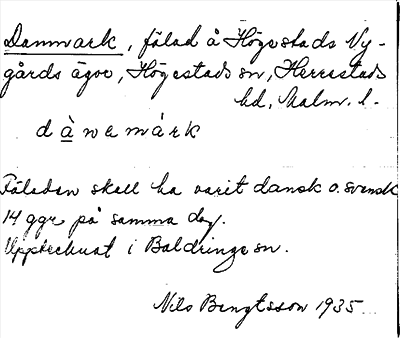 Danmark, fälad å Högestads Ny-
gårds ägor, Högestads sn, Herrestads
hd, Malm. l.
dànemárk
Fäladen skall ha varit dansk o. svensk
14 ggr på samma dag.
Upptecknat i Baldringe sn.
Nils Bengtsson 1935